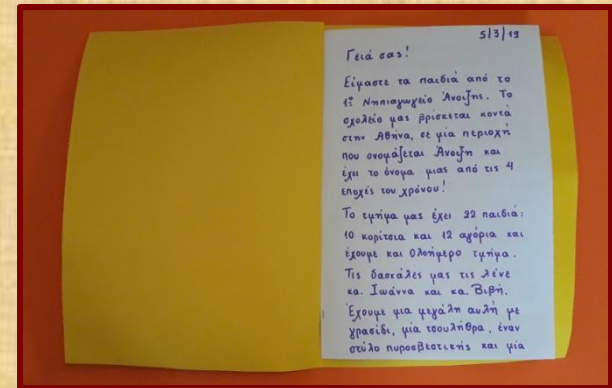 5/3/19
Γειά σας!
Είμαστε τα παιδιά από το
1ο Νηπιαγωγείο Άνοιξης. Το
σχολείο μας βρίσκεται κοντά
στην Αθήνα, σε μία περιοχή
που ονομάζεται Άνοιξη και
έχει το όνομα μιας από τις 4
εποχές του χρόνου!
Το τμήμα μας έχει 22 παιδιά:
10 κορίτσια και 12 αγόρια και
έχουμε και Ολοήμερο τμήμα.
Τις δασκάλες μας τις λένε
κα. Ιωάννα και κα. Βιβή.
Έχουμε μια μεγάλη αυλή με
γρασίδι, μία τσουλήθρα, έναν
στύλο πυροσβεστικής και μία